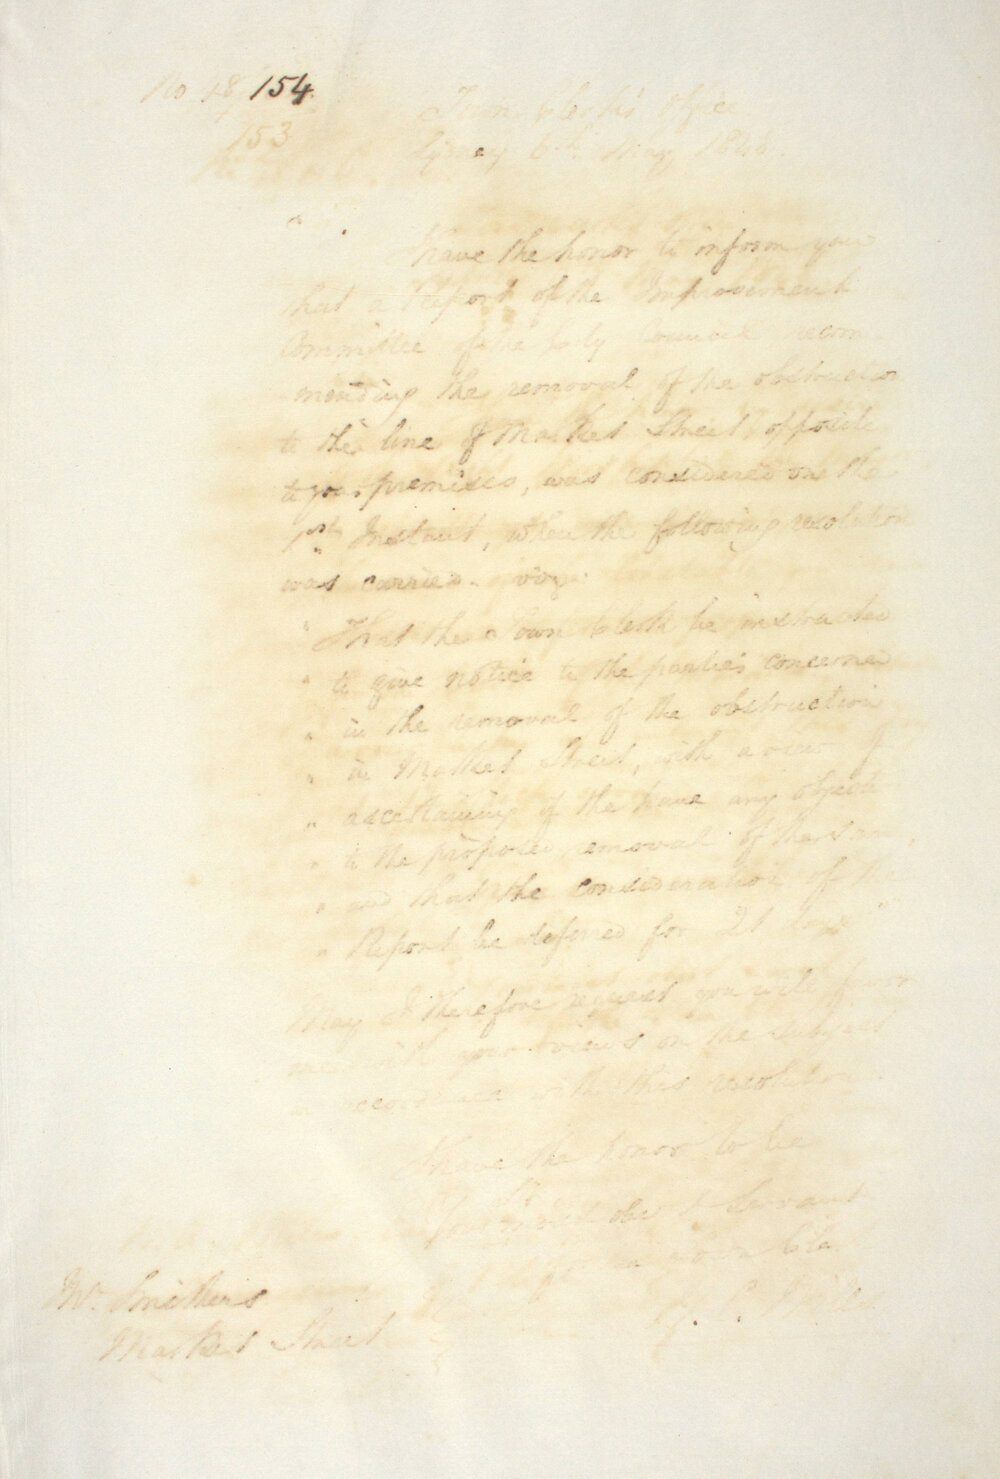 No 48 154.
153
Town Clerk's Office
Sydney 6th May 1848.
Sir
I have the honor to inform you
that a Report of the Improvement
Committee of the City Council recom
mending the removal of the obstruction
to the line of Market Street, opposite
to your premises, was considered on the
1st Instant, when the following resolution
was carried. viz:
" That the Town Clerk be instructed
" to give notice to the parties concerned
" in the removal of the obstruction
" in Market Street, with a view of
" ascertaining if the have any objection
" to the proposed removal of the same,
" and that the consideration of the
" Report be deferred for 21 days"
May I therefore request you will favor
me with your views on the subject
in accordance with this resolution.
I have the honor to be
Sir
Your most obedt Servant
Town Clerk
Mr. Smithers
Market Street